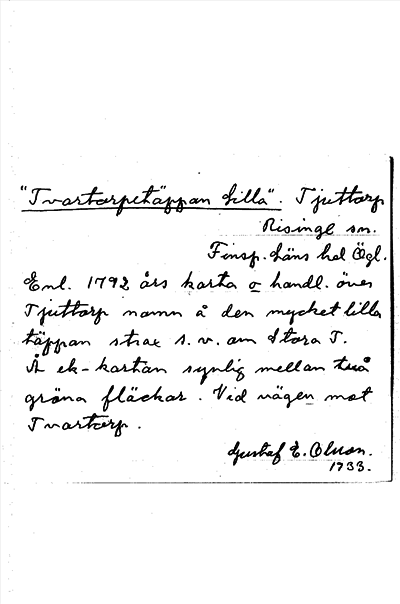 "Tvartorpetäppan Lilla". Tjuttorp
Risinge sn.
Finsp. läns hd Ögl.
Enl. 1792 års karta o handl. över
Tjuttorp namn å den mycket lilla
täppan strax s.v. om Stora T.
Å ek-kartan synlig mellan två
gröna fläckar. Vid vägen mot
Tvartorp.
Gustaf E. Olson.
1933.